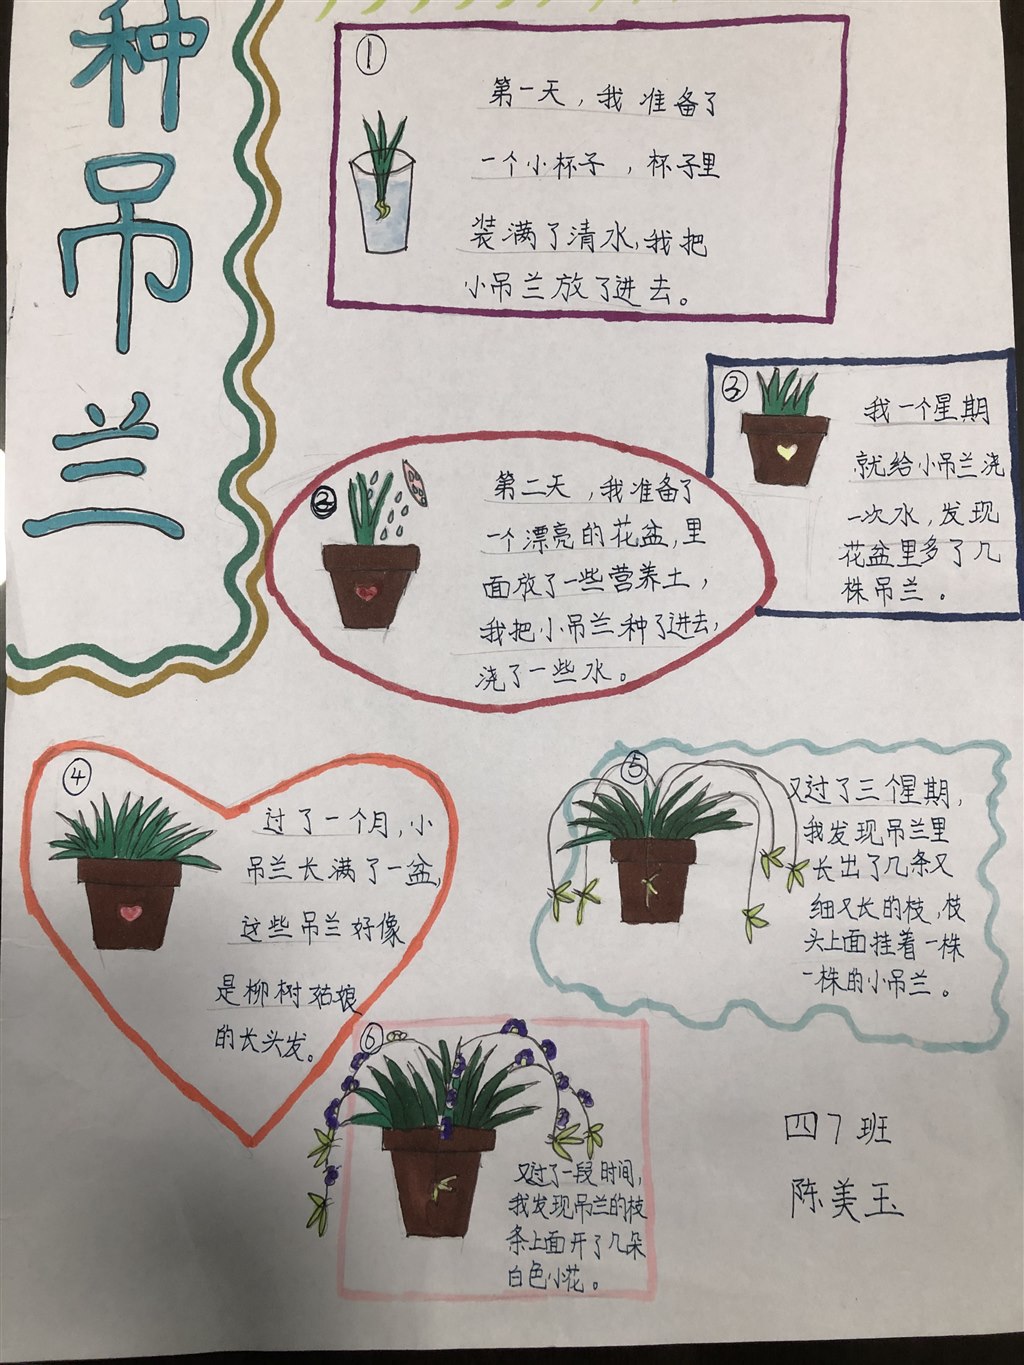 种吊兰
①
第一天，我准备了
一个小杯子，杯子里
装满了清水，我把
小吊兰放了进去。
②
第二天，我准备了
一个漂亮的花盆，里
面放了一些营养土，
我把小吊兰种了进去，
浇了一些水。
③
我一个星期
就给小吊兰浇
一次水，发现
花盆里多了几
株吊兰。
④
过了一个月，小
吊兰长满了一盆，
这些吊兰好像
是柳树姑娘
的长头发。
⑤
又过了三个星期，
我发现吊兰里
长出了几条又
细又长的枝，枝
头上面挂着一株
一株的小吊兰。
⑥
又过了一段时间，
我发现吊兰的枝
条上面开了几朵
白色小花。
四7班
陈美玉